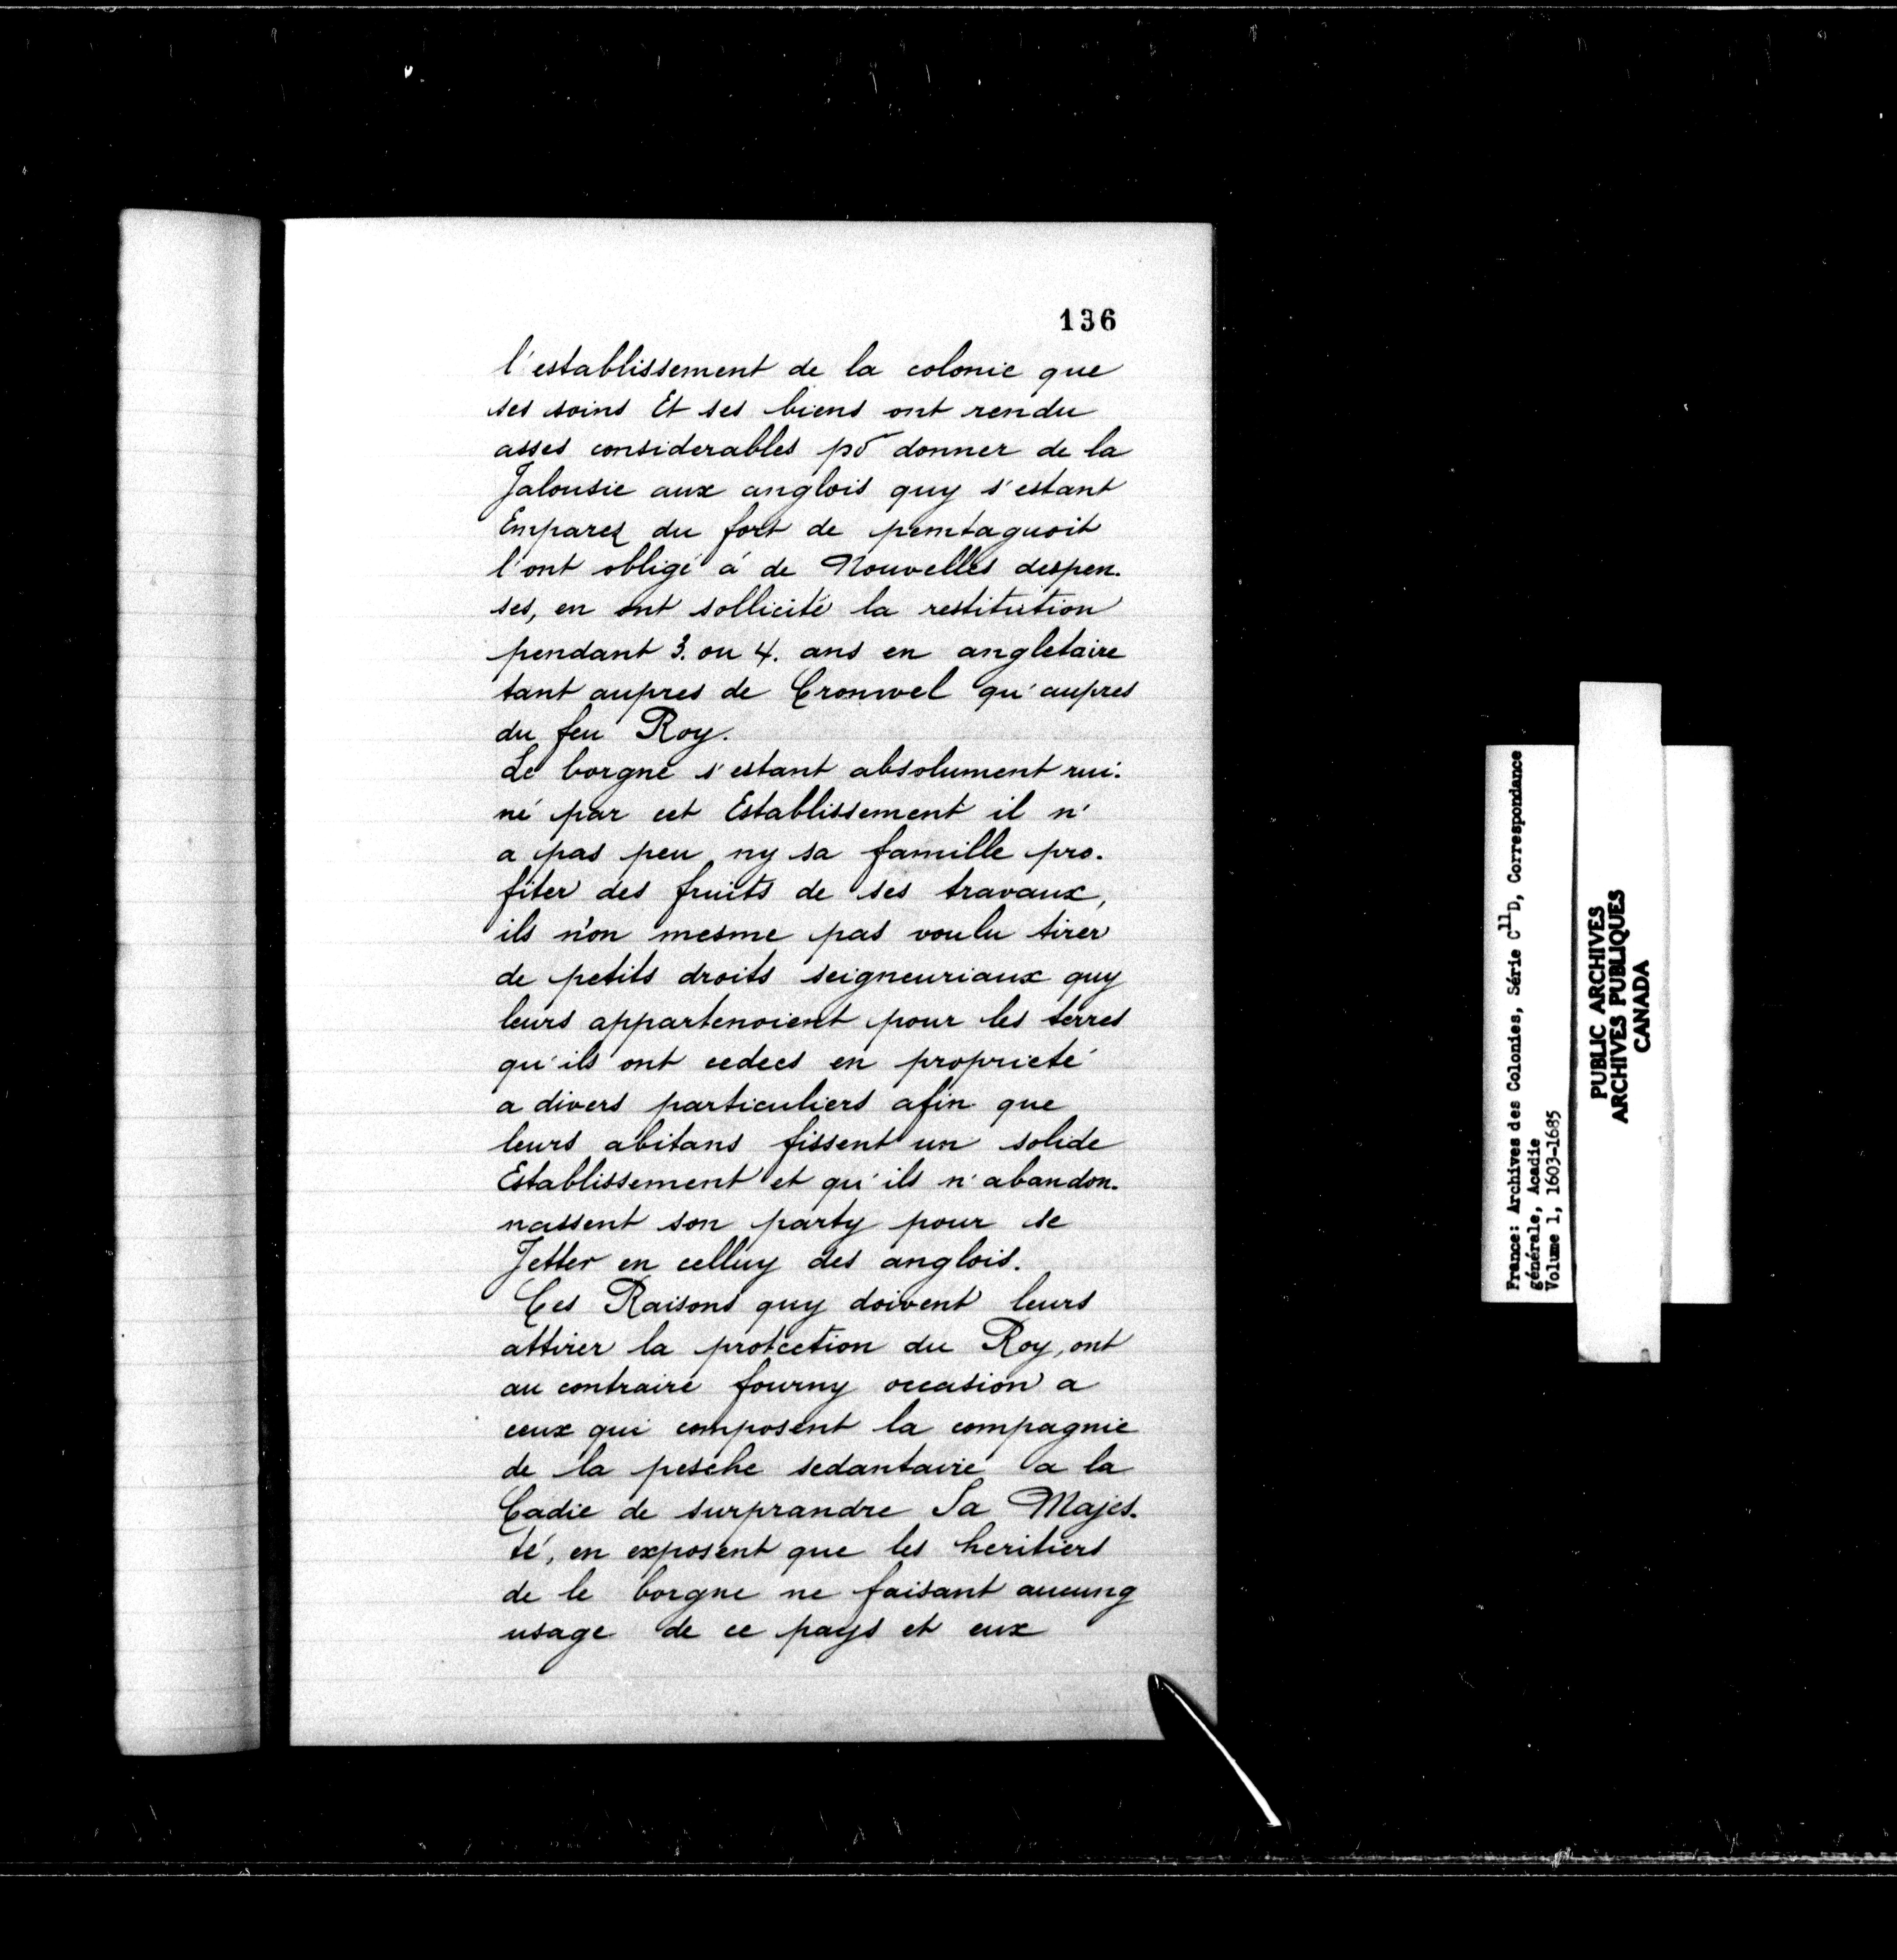 136
l'establissement de la colonie que
ses soins Et ses biens ont rendu
asses considerables po donner de la
Jalousie aux anglois quy s'estant
Emparez du fort de pemtaguoit
l'ont obligé á de Nouvelles despen.
ses, en ont sollicité la restitution
pendant 3. ou 4. ans en angletaire
tant aupres de Cromwel qu'aupres
du feu Roy.
Le borgne s'estant absolument rui.
né par cet Establissement il n'
a pas peu ny sa famille pro.
fiter des fruits de ses travaux,
ils n'on mesme pas voulu tirer
de petits droits seigneuriaux quy
leurs appartenoient pour les terres
qu'ils ont cedees en proprieté
a divers particuliers afin que
leurs abitans fissent un solide
Establissement et qu'ils n'abandon.
nassent son party pour se
Jetter en celluy des anglois.
Ces Raisons quy doivent leurs
attirer la protection du Roy, ont
au contraire fourny occasion a
ceux qui composent la compagnie
de la pesche sedantaire a la
Cadie de surprandre Sa Majes.
té, en exposent que les heritiers
de le borgne ne faisant aucung
usage de ce pays et eux
France: Archives des Colonies, Série C11D, Correspondance
générale, Acadie
Volume 1, 1603-1685
PUBLIC ARCHIVES
ARCHIVES PUBLIQUES
CANADA